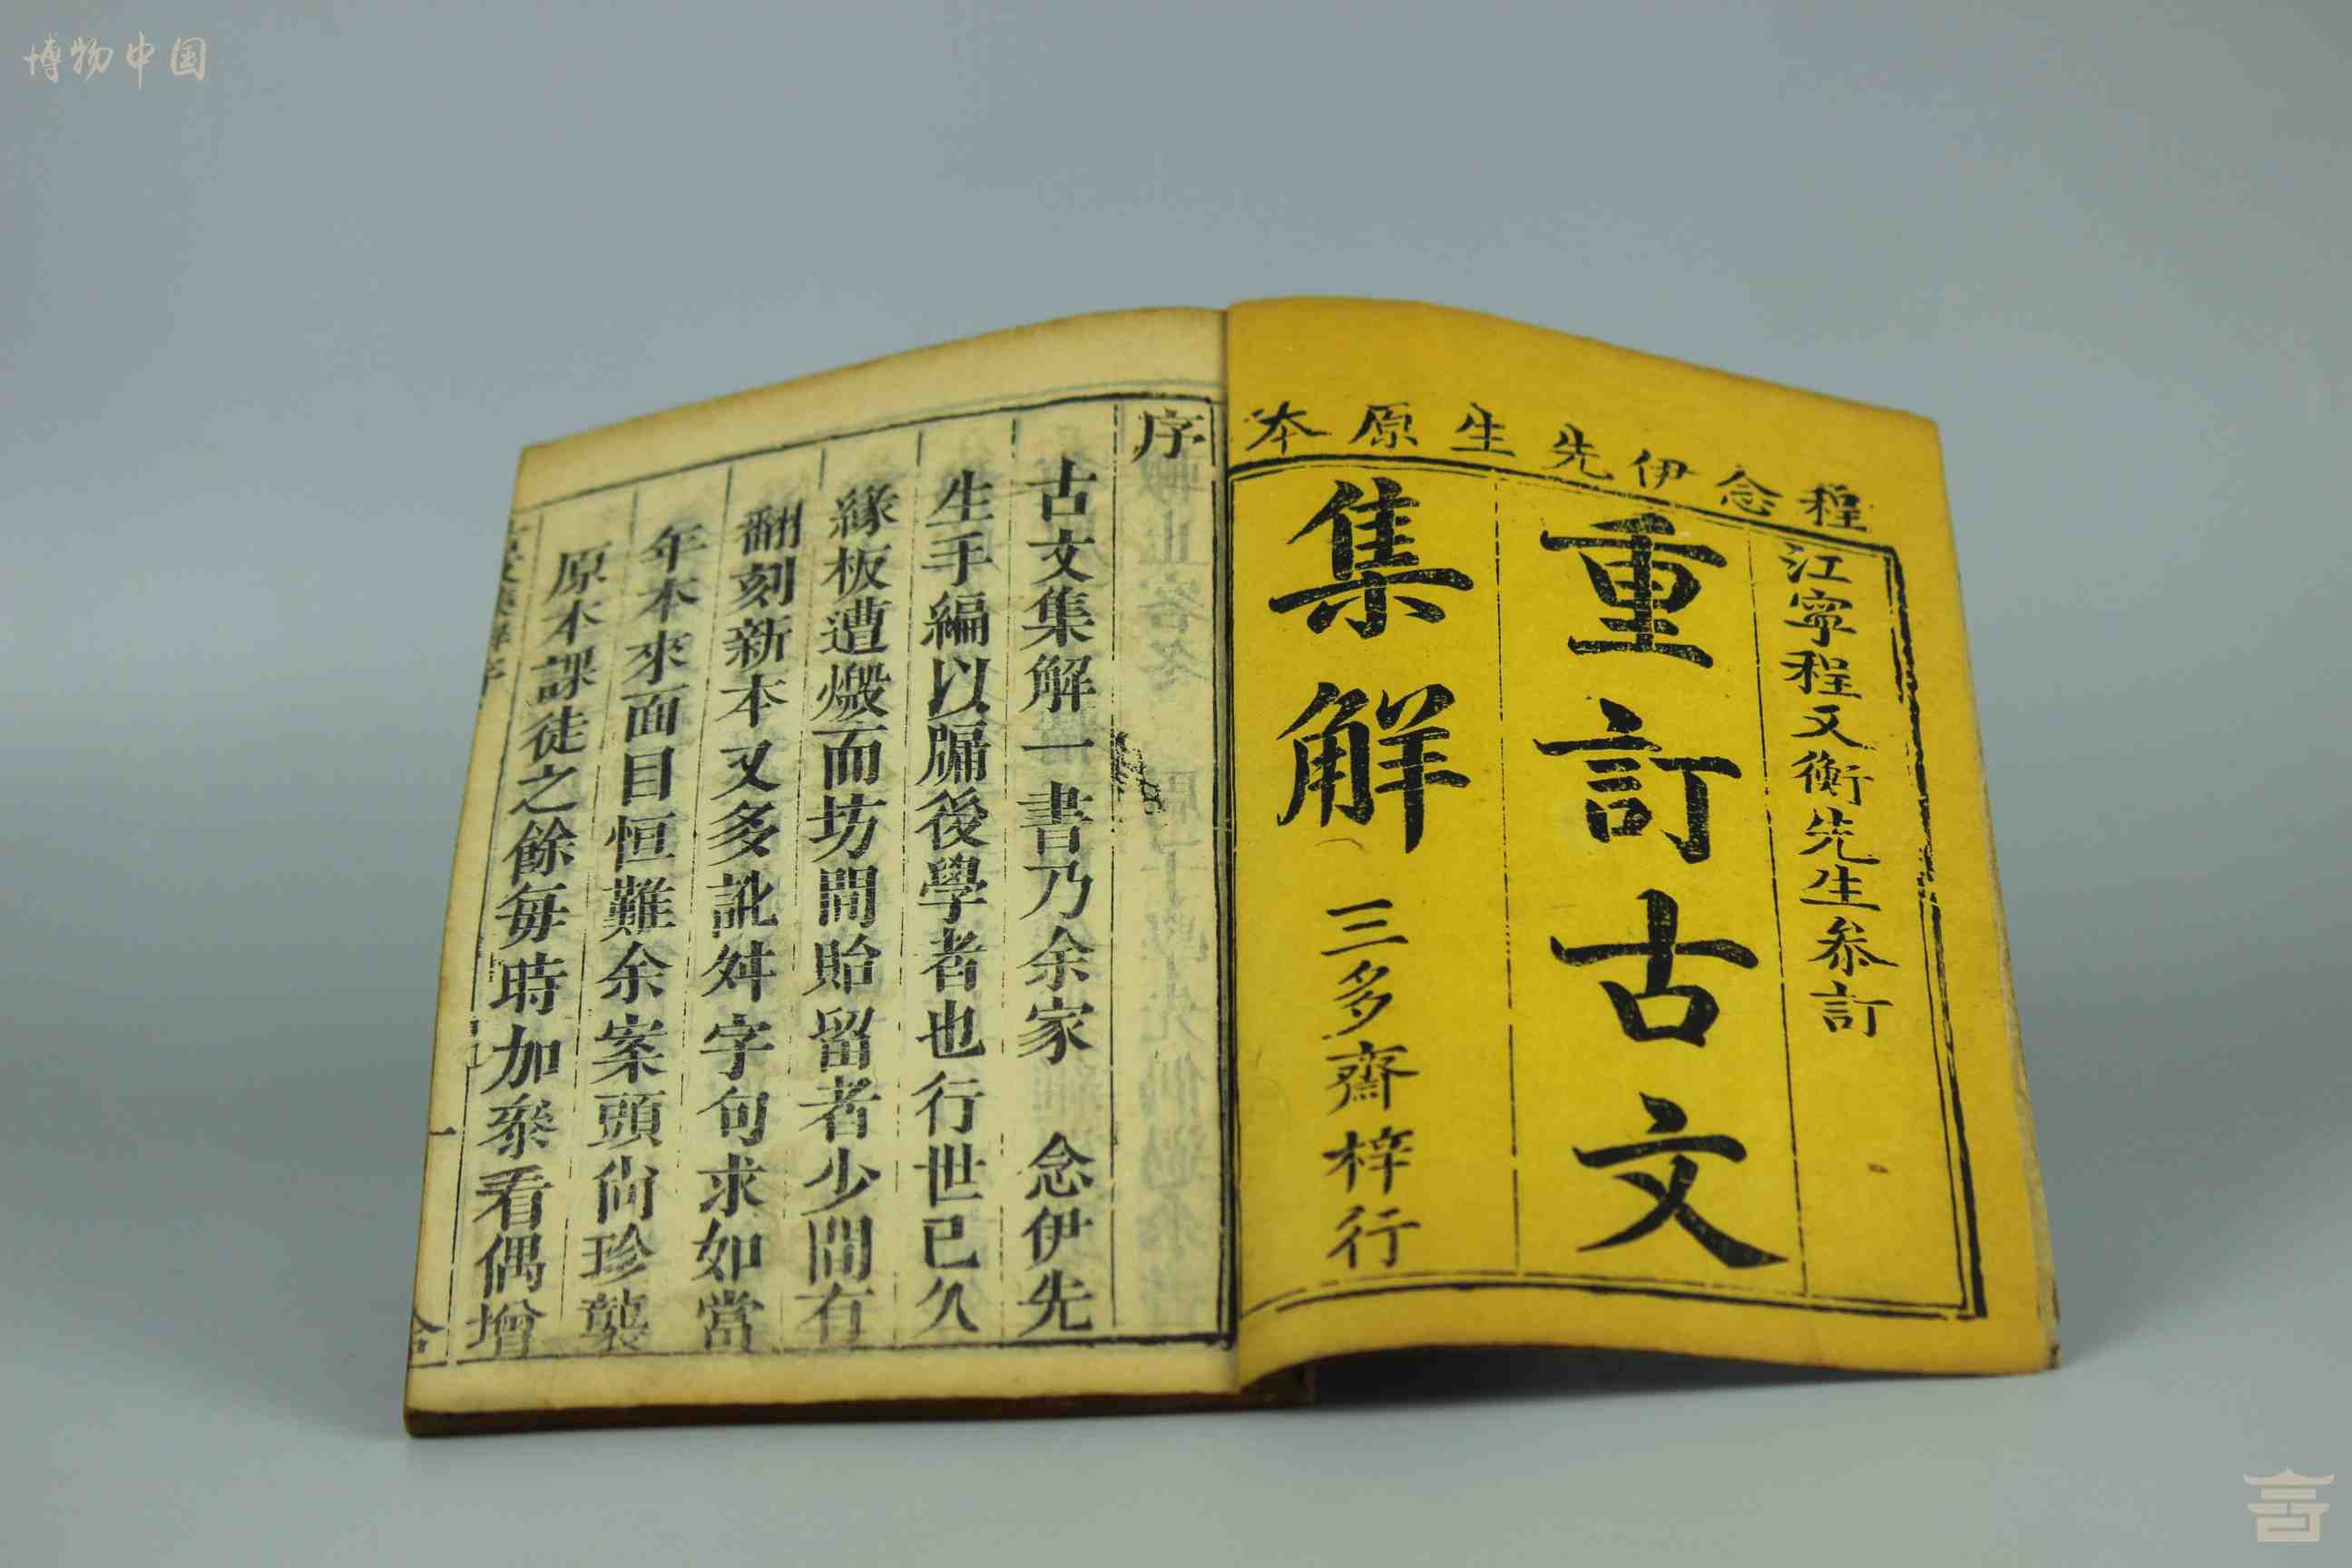 博物中国
程念伊先生原本
江寧程又衡先生叅訂
重訂古文
集解
三多齋梓行
序
古文集解一書乃余家 念伊先
生手編以牖後學者也行世已久
緣板遭燬而坊間貽留者少間有
翻刻新本又多訛舛字句求如當
年本來面目恒難余案頭尙珍襲
原本課徒之餘每時加叅看偶增